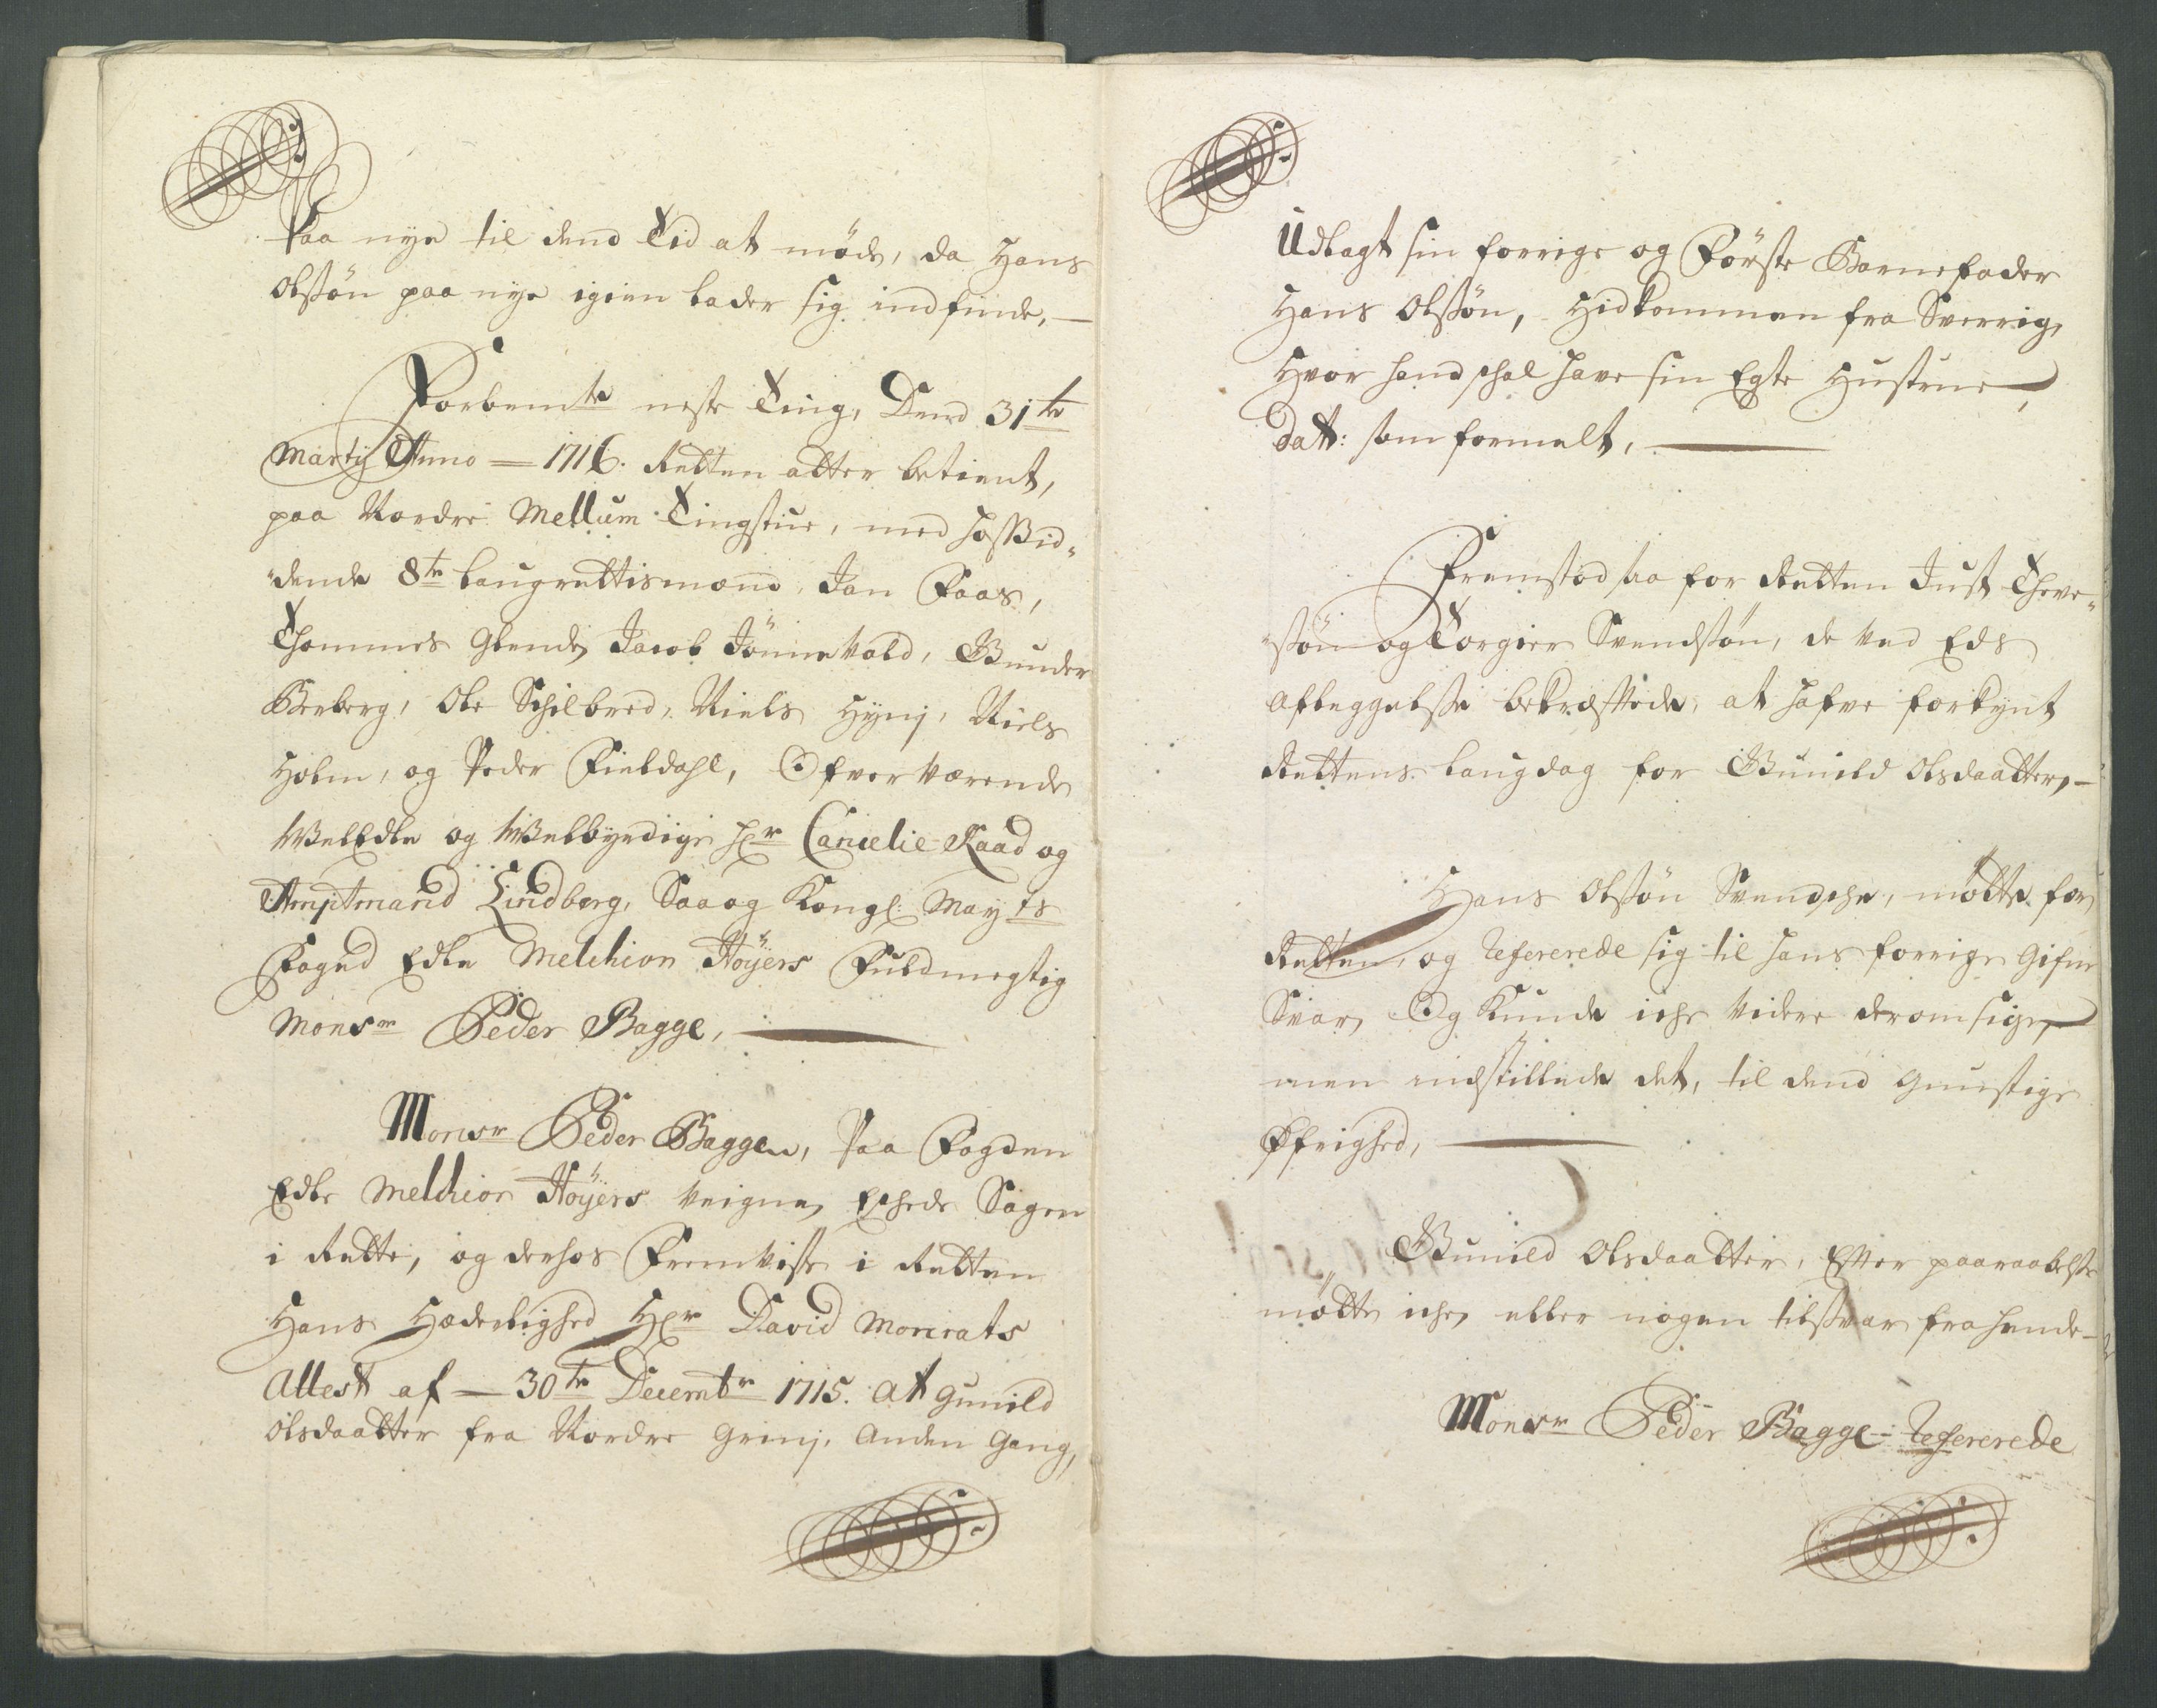 Paa nye til dend Tid at møde, da Hans
Olssøn paa nye igien lader sig indfinde, —
Forbemte neste Ting, Dend 31te
Martij Anno — 1716. Retten atter betient,
paa Nordre Mellum Tingstue, med hossid„
„dende 8te Laugrettismænd, Jan Faas,
Thommes Glende, Jacob Jønnevold, Gunder
Berberg, Ole Schilbred, Niels Hynj, Niels
Holm, og Peder Fieldahl, Ofverværende
WelEdle og Welbyrdige Hr Cancelie-Raad og
Amptmand Lindberg, Saa og Kongl: Mayts
Foged Edle Melchior Høyers Fuldmegtig
Monsr Peder Bagge,
Monsr Peder Baggen, Paa Fogden
Edle Melchior Høyers veigne, Eschede Sagen
i Rette, og derhos Fremviste i Retten
Hans Hæderlighed Hr David Monrats
Attest af — 30te Decembr 1715. At Gunild
Olsdaatter fra Nordre Grinj, Anden Gang,
Udlagt sin forrige og Første Barnefader
Hans Olssøn, Hidkommen fra Sverrig,
Hvor hand schal have sin Egte Hustrue,
Datt: som formelt,
Fremstod saa for Retten Just Theve„
„søn og Torgier Svendssøn, de ved Eds
Afleggelsse bekræftede, at hafve forkynt
Rettens Laugdag for Gunild Olsdaatter, —
Hans Olssøn Svendsche, mødte for
Retten, og refererede sig til hans forrige Gifne
Svar, Og Kunde iche videre derom sige,
men indstillede det, til dend Gunstige
Øfrighed,
Gunild Olsdaatter, Efter paaraabelse
mødte iche, eller nogen tilsvar fra hende —
Monsr Peder Bagge refererede